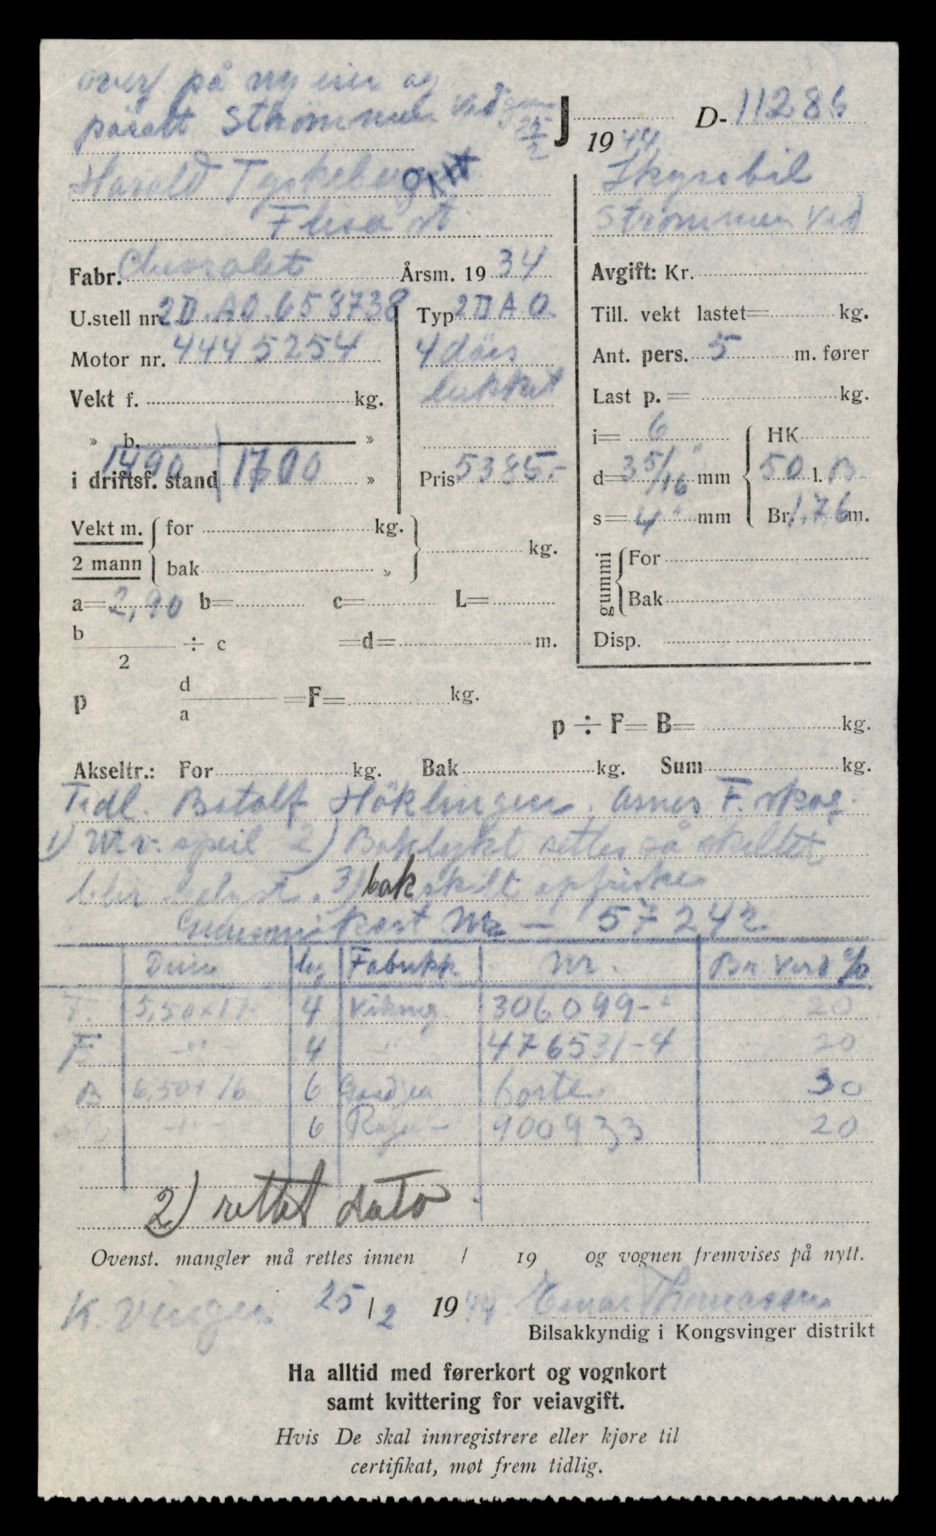 over på ny eier og
påsatt Strømmen Ved
25/2
J 1944 D-11286
Harald
Flisa st
Skyssbil
Strømmen Ved
Fabr. Chevrolet Årsm. 1934 Avgift: Kr.
U.stell nr. 2D.AO.658738 Typ 2DAO Till. vekt lastet= kg.
Motor nr. 4445254 4 dørs Ant. pers. 5 m. fører
Vekt f. kg. lukket Last p.= kg.
» b. » i= 6 HK
1490 1700
i driftsf. stand » Pris 5385.- d= 3 5/16" mm 50 l. B
Vekt m. for kg. s= 4" mm Br. 1,76 m.
2 mann bak » kg. gummi For
a= 2,90 b= c= L= Bak
b/2 ÷ c =d= m. Disp.
p d/a =F= kg.
p ÷ F= B= kg.
Akseltr.: For kg. Bak kg. Sum kg.
Tidl. Botolf Høklingen, Åsnes F.skog.
1) speil 2) Baklykt settes så skiltet
blir belyst. 3) bakskilt oppfriskes
Gummikort Nr — 57242
Dim lag Fabrikk Nr. Br. Verd %
F. 5,50x17 4 Viking 306099- 20
F. -"- 4 -"- 476531-4 20
B 6,50x16 6 borte 30
-"- 6 900933 20
2) rettet dato
Ovenst. mangler må rettes innen / 19 og vognen fremvises på nytt.
K.vinger 25/2 1944 Einar Thomassen
Bilsakkyndig i Kongsvinger distrikt
Ha alltid med førerkort og vognkort
samt kvittering for veiavgift.
Hvis De skal innregistrere eller kjøre til
certifikat, møt frem tidlig.